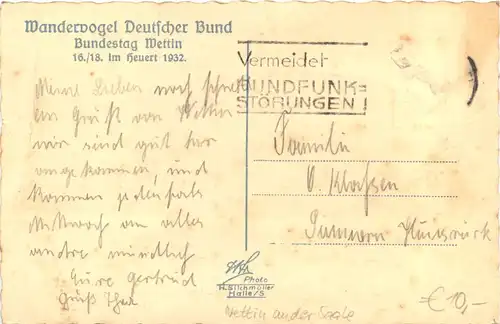 Wandervogel Deutscher Bund
Bundestag Wettin
16./18. Im Heuert 1932.
Vermeidet
RUNDFUNK=
STÖRUNGEN!
Meine Lieben noch schnell
ein Gruß von Wettin
wir sind gut hier
angekommen, und
kommen jedenfalls
Mittwoch an alles
andre mündlich
Eure Gertrud
Gruß
Familie
O. Klassen
Simmern Hunsrück
Photo
H. Silchmüller
Halle/S
Wettin an der Saale
€ 10,-